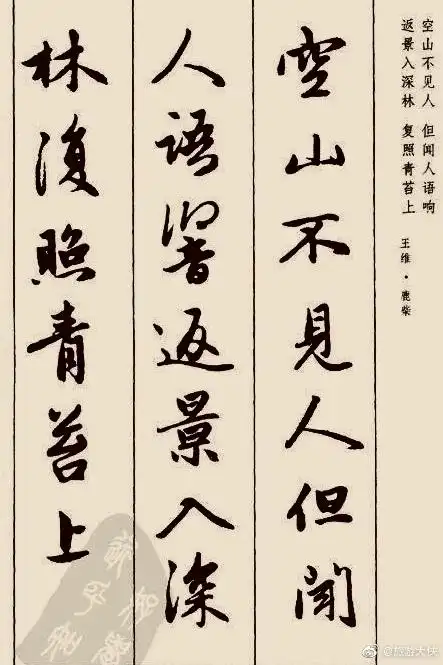 空山不见人 但闻人语响
返景入深林 复照青苔上
王维·鹿柴
空山不見人但聞
人語響返景入深
林復照青苔上
@旅游大侠